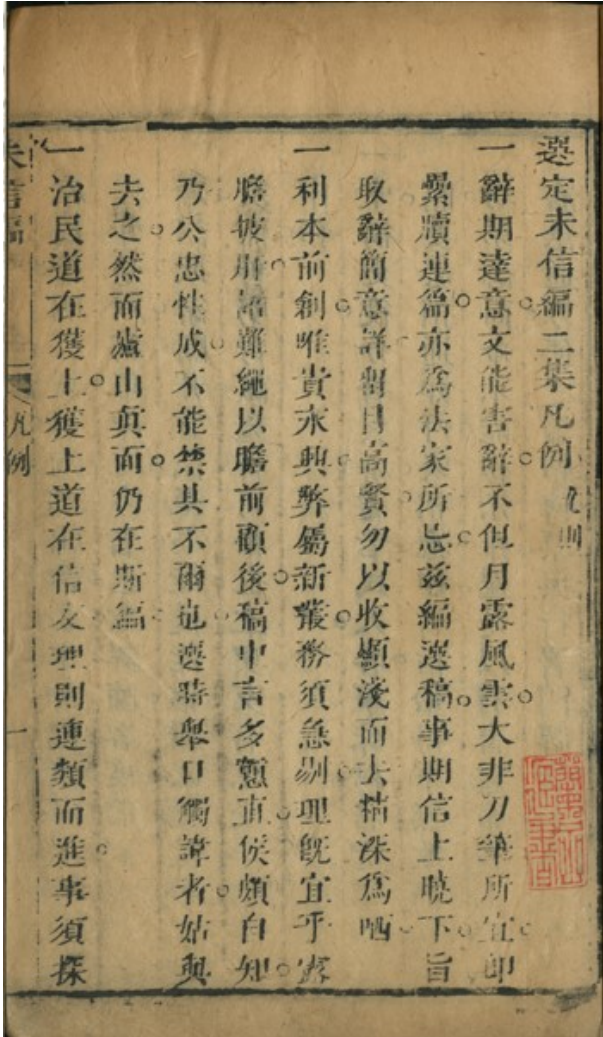 選定未信編二集凡例 九則
一辭期達意文能害辭不但月露風雲大非刀筆所宜卽
纍牘連篇亦爲法家所忌茲編選稿事期信上曉下旨
取辭簡意詳習目高賢勿以收顯淺而去精深爲哂
一利本前創唯貴永興弊屬新叢務須急剔理旣宜乎露
膽披肝語難繩以瞻前顧後稿中言多戇直侯頗自知
乃公忠性成不能禁其不爾也選時舉口觸諱者姑與
去之然而廬山眞面仍在斯編
一治民道在獲上獲上道在信友理則連類而進事須探
未信編
凡例
一